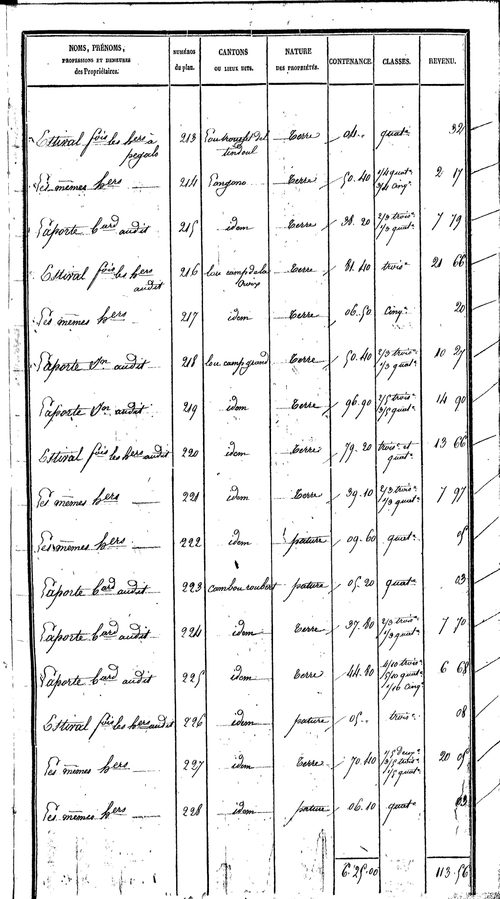 NOMS, PRÉNOMS, PROFESSIONS ET DEMEURES des Propriétaires. NUMÉROS du plan. CANTONS OU LIEUX DITS. NATURE DES PROPRIÉTÉS. CONTENANCE. CLASSES. REVENU.
Estival fois les hers à pegals 213 tindoul Terre 04.. quat.e 32
Les mêmes hers 214 Pongono Terre 50.40 1/4 quat.e 3/4 cinq.e 2 17
Laporte bard audit 215 idem Terre 38.20 2/3 trois.e 1/3 quat.e 7 79
Estival fois les hers audit 216 lou camp de la Croix Terre 81.40 trois.e 21 66
Les mêmes hers 217 idem Terre 06.50 cinq.e 20
Laporte Von audit 218 lou camp grand Terre 50.40 2/3 trois.e 1/3 quat.e 10 27
Laporte Von audit 219 idem Terre 96.90 2/5 trois.e 3/5 quat.e 14 90
Estival fois les hers audit 220 idem Terre 79.20 trois.e et quat.e 13 66
Les mêmes hers 221 idem Terre 39.10 2/3 trois.e 1/3 quat.e 7 97
Les mêmes hers 222 idem pature 09.60 quat.e 05
Laporte bard audit 223 Cambou roubert pature 05.20 quat.e 03
Laporte bard audit 224 idem Terre 37.80 2/3 trois.e 1/3 quat.e 7 70
Laporte bard audit 225 idem Terre 44.80 4/10 trois.e 5/10 quat.e 1/10 cinq.e 6 68
Estival fois les hers audit 226 idem pature 05.. trois.e 08
Les mêmes hers 227 idem Terre 70.40 1/5 deux.e 3/5 trois.e 1/5 quat.e 20 05
Les mêmes hers 228 idem pature 06.10 quat.e 03
6.25.00 113.56